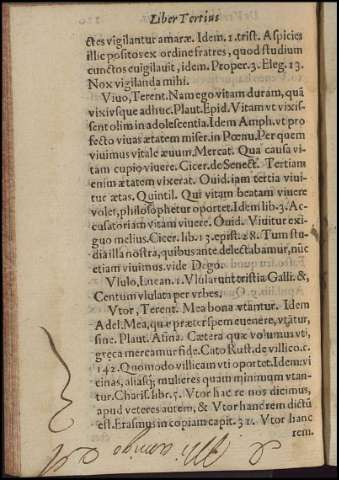 Liber Tertius
ctes vigilantur amaræ. Idem. 1. trist. Aspicies
illic positos ex ordine fratres, quod studium
cunctos euigilauit, idem. Proper. 3. Eleg. 13.
Nox vigilanda mihi.
Viuo, Terent. Nam ego vitam duram, quã
vixi vsque adhuc. Plaut. Epid. Vitam vt vixis-
sent olim in adolescentia. Idem Amph. vt pro-
fecto viuas ætatem miser. in Pœnu. Per quem
viuimus vitale æuum, Mercat. Qua causa vi-
tam cupio viuere. Cicer. de Senect. Tertiam
enim ætatem vixerat. Ouid. iam tertia viui-
tur ætas. Quintil. Qui vitam beatam viuere
volet, philosophetur oportet. Idem lib. 3. Ac-
cusatoriam vitam viuere. Ouid. Viuitur exi-
guo melius. Cicer. lib. 13. epist. 28. Tum stu-
dia illa nostra, quibus ante delectabamur, nũc
etiam viuimus. vide De go.
Vlulo, Lucan. 1. Vlularunt tristia Galli. &,
Centum vlulata per vrbes.
Vtor, Terent. Mea bona vtantur. Idem
Adel. Mea, quæ præter spem euenere, vtãtur,
sine. Plaut. Asina. Cætera quæ volumus vti,
græca mercamur fide. Cato Rust. de villico. c.
142. Quomodo villicam vti oportet. Idem: vi
cinas, aliasq; mulieres quam minimum vtan-
tur. Charis. libr. 5. Vtor hac re nos dicimus,
apud veteres autem, & Vtor hanc rem dictũ
est. Erasmus in copiam capit. 32. Vtor hanc
rem.